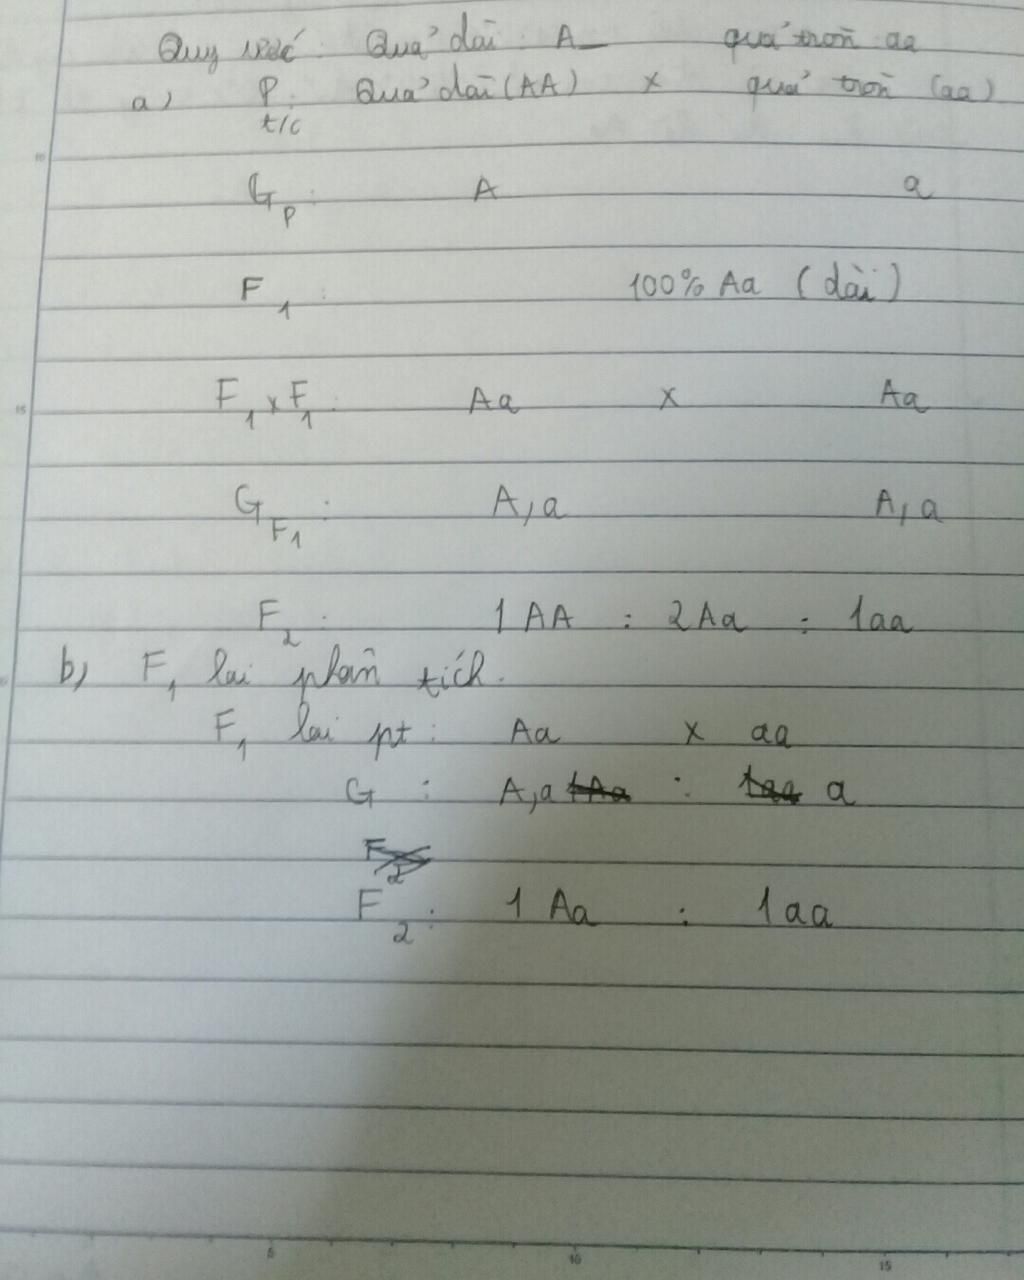 Quy ước: Quả dài: A_ quả tròn aa
a) P t/c: Quả dài (AA) x quả tròn (aa)
G P: A a
F1: 100% Aa (dài)
F1 x F1: Aa x Aa
G F1: A, a A, a
F2: 1 AA : 2 Aa : 1 aa
b) F1 lai phân tích.
F1 lai pt: Aa x aa
G: A, a 1Aa : 1aa a
F2
F2: 1 Aa : 1 aa
10
15
5
10
15